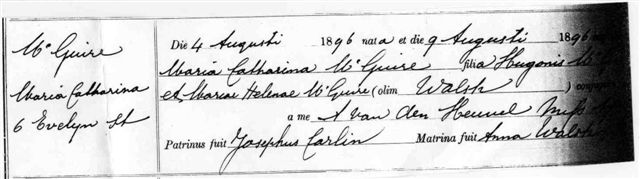 Mc Guire
Maria Catharina
6 Evelyn St
Die 4 Augusti 1896 nata et die 9 Augusti 1896
Maria Catharina Mc Guire filia Hugonis Mc
et Mariae Helenae Mc Guire (olim Walsh)
a me A van den Heuvel Miss
Patrinus fuit Josephus Carlin Matrina fuit Anna Walsh